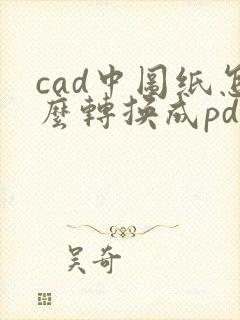 cad中图纸怎
麼轉換成pd
吴奇